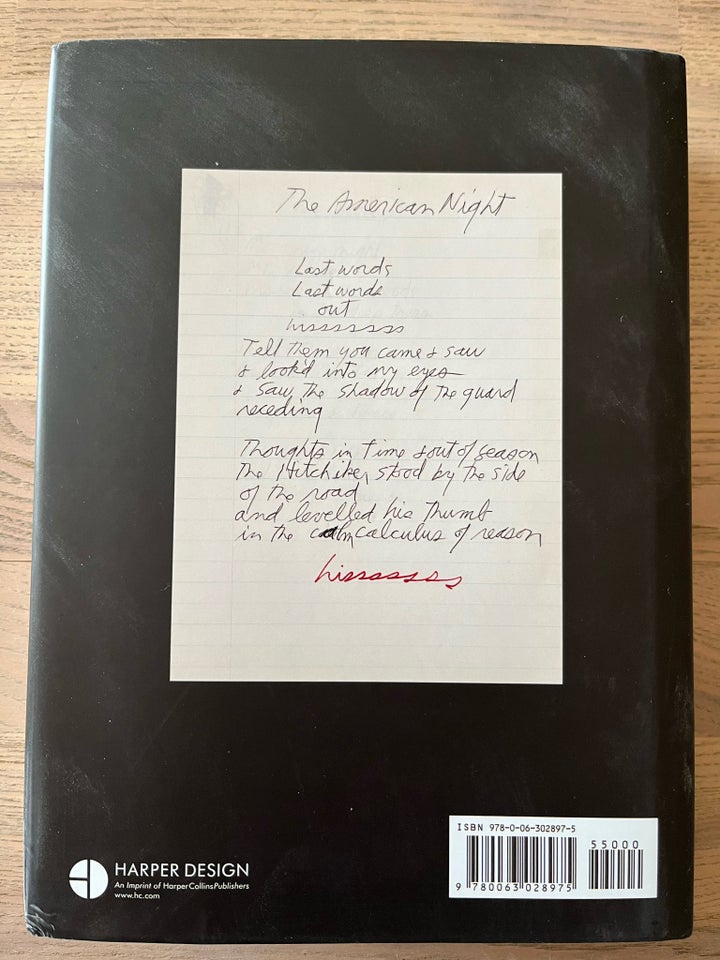 The American Night
Last words
Last words
out
hisssssss
Tell them you came & saw
& look'd into my eyes
& saw the shadow of the guard
receding
Thoughts in time & out of season
The Hitchiker stood by the side
of the road
and levelled his thumb
in the calm calculus of reason
hissssssss
ISBN 978-0-06-302897-5
55000
9 780063 028975
HARPER DESIGN
An Imprint of HarperCollinsPublishers
www.hc.com